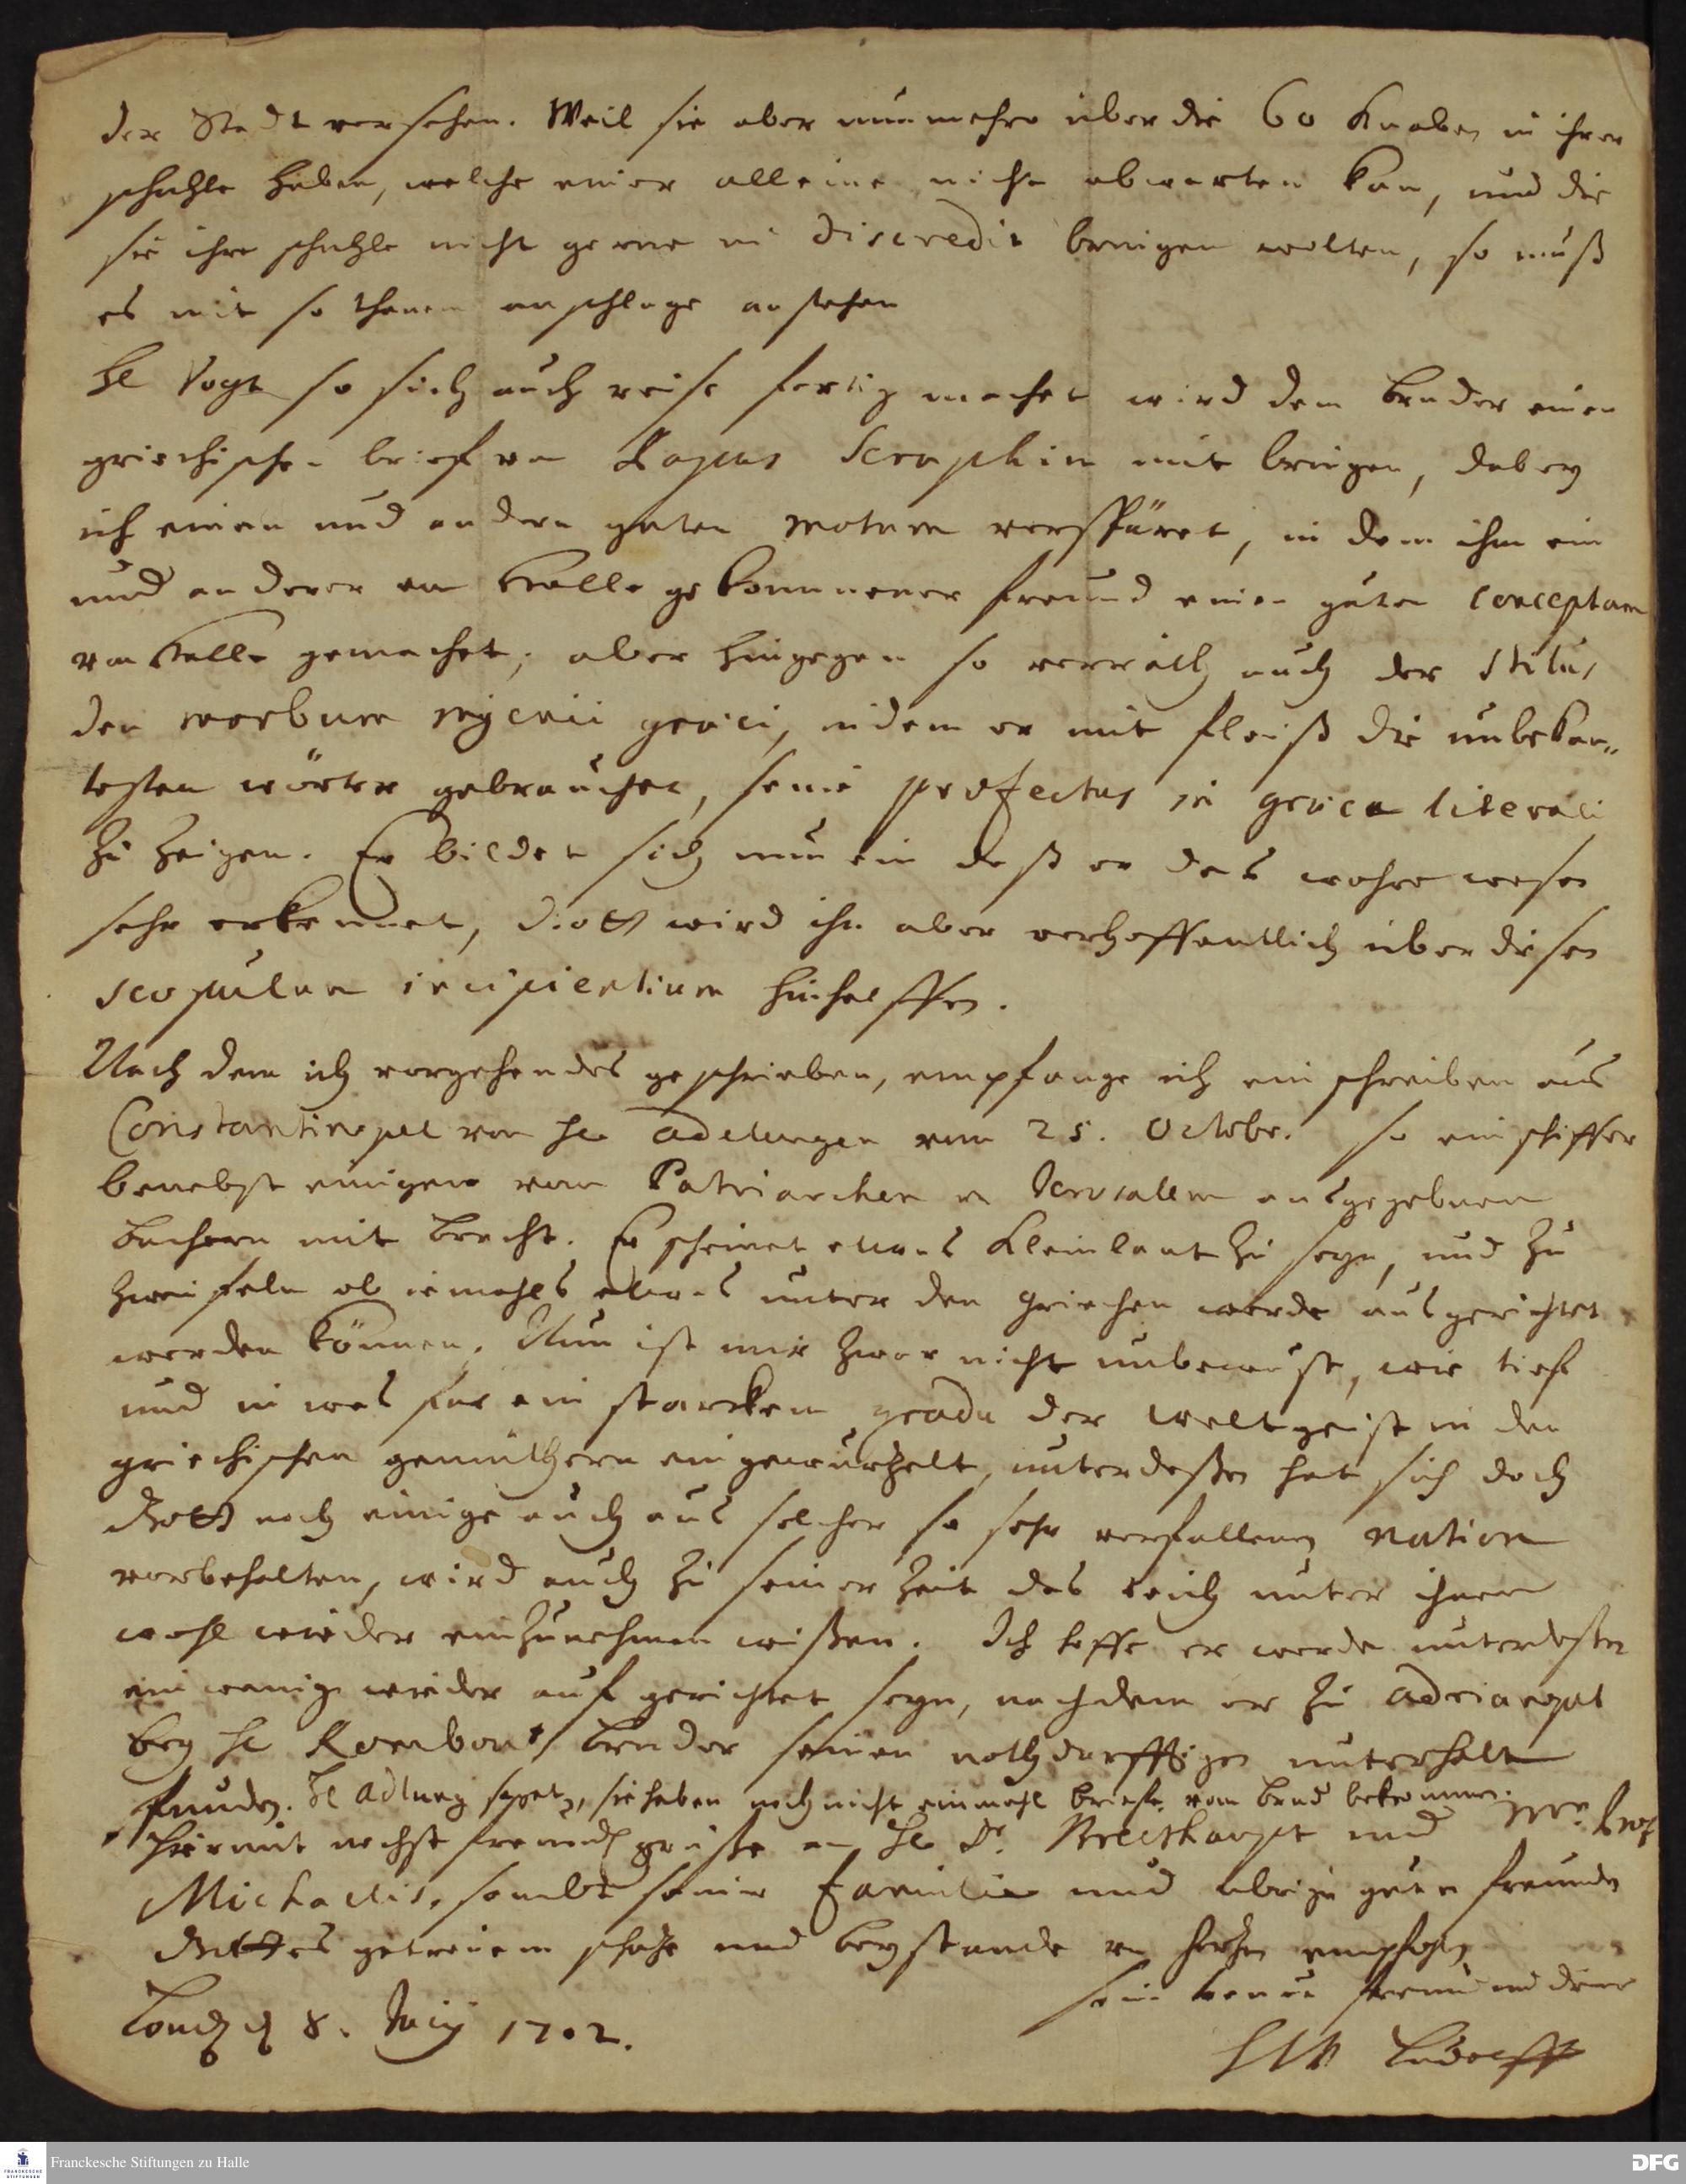 der Stadt versehen. Weil sie aber nunmehro über die 60 Knaben in ihrer
schuhle haben, welche einer alleine nicht abwarten kan, und die
sie ihre schuhle nicht gerne in discredit bringen wolten, so muß
es mit so thanem anschlage anstehen
He Vogt so sich auch reise fertig machet wird dem bruder einen
griechischen brief von Papas Seraphim mit bringen, dabey
ich einen und andern guten motum verspüret, in dem ihm ein
und anderer von Halle gekommener freund einen guten conceptum
von Halle gemachet; aber hingegen so verräth auch der stilus
den morbum ingenii graeci, indem er mit fleiß die unbekan„
testen wörter gebrauchet, seine profectus in graeca literali
zu zeigen. Er bildet sich nun ein daß er das wahre wesen
sehr erkennet, Gott wird ihn aber verhoffentlich über diesen
scopulum incipientium hinhelffen.
Nach dem ich vorgehendes geschrieben, empfange ich ein schreiben aus
Constantinopel von He Adelungen vom 25. Octobr. so ein schiffer
benebst einigen vom Patriarchen v Jerusalem ausgegebnen
buchern mit bracht. Er scheinet etwas kleinlaut zu seyn, und zu
zweifeln ob iemahls etwas unter den Griechen werde ausgerichtet
werden können. Nun ist mir zwar nicht unbewust, wie tief
und in was fur ein starcken gradu der weltgeist in den
griechischen gemüthern eingewurtzelt, unterdeßen hat sich doch
Gott noch einige auch aus solcher so sehr verfallenen nation
vorbehalten, wird auch zu seiner Zeit das reich unter ihnen
wohl wieder einzunehmen wißen. Ich hoffe er werde unterdeßen
ein wenig wieder auf gerichtet seyn, nachdem er zu Adrianopel
bey He Rombouts bruder seinen nothdurfftigen unterhalt
funden. He Adlung saget, sie haben noch nicht einmahl briefe vom brud bekommen.
Hiermit nechst freundl grüße an He Dr. Breithaupt und Mr. Prof
Michaelis, sambt seiner familie und ubrigen guten freunden
Gottes getreuem schutze und beystande von hertzen empfohlen
sein treuer freund und diener
Lond d 8. 1702.
HW Ludolff
Franckesche Stiftungen zu Halle
FRANCKESCHE STIFTUNGEN
DFG